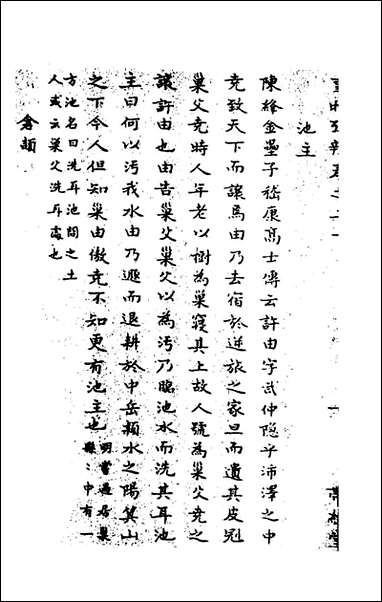 池主
陳絳金罍子嵇康高士傳云許由字武仲隐乎沛澤之中
尭致天下而讓焉由乃去宿於逆旅之家旦而遺其皮冠
巢父尭時人年老以樹為巢寢其上故人號為巢父尭之
讓許由也由告巢父巢父以為汚乃臨池水而洗其耳池
主曰何以汚我水由乃遯而退耕於中岳頴水之陽箕山
之下今人但知巢由傲尭不知更有池主也
明嘗過居巢
縣縣中有一
方池名曰洗耳池問之土
人或云巢父洗耳處也
倉頡